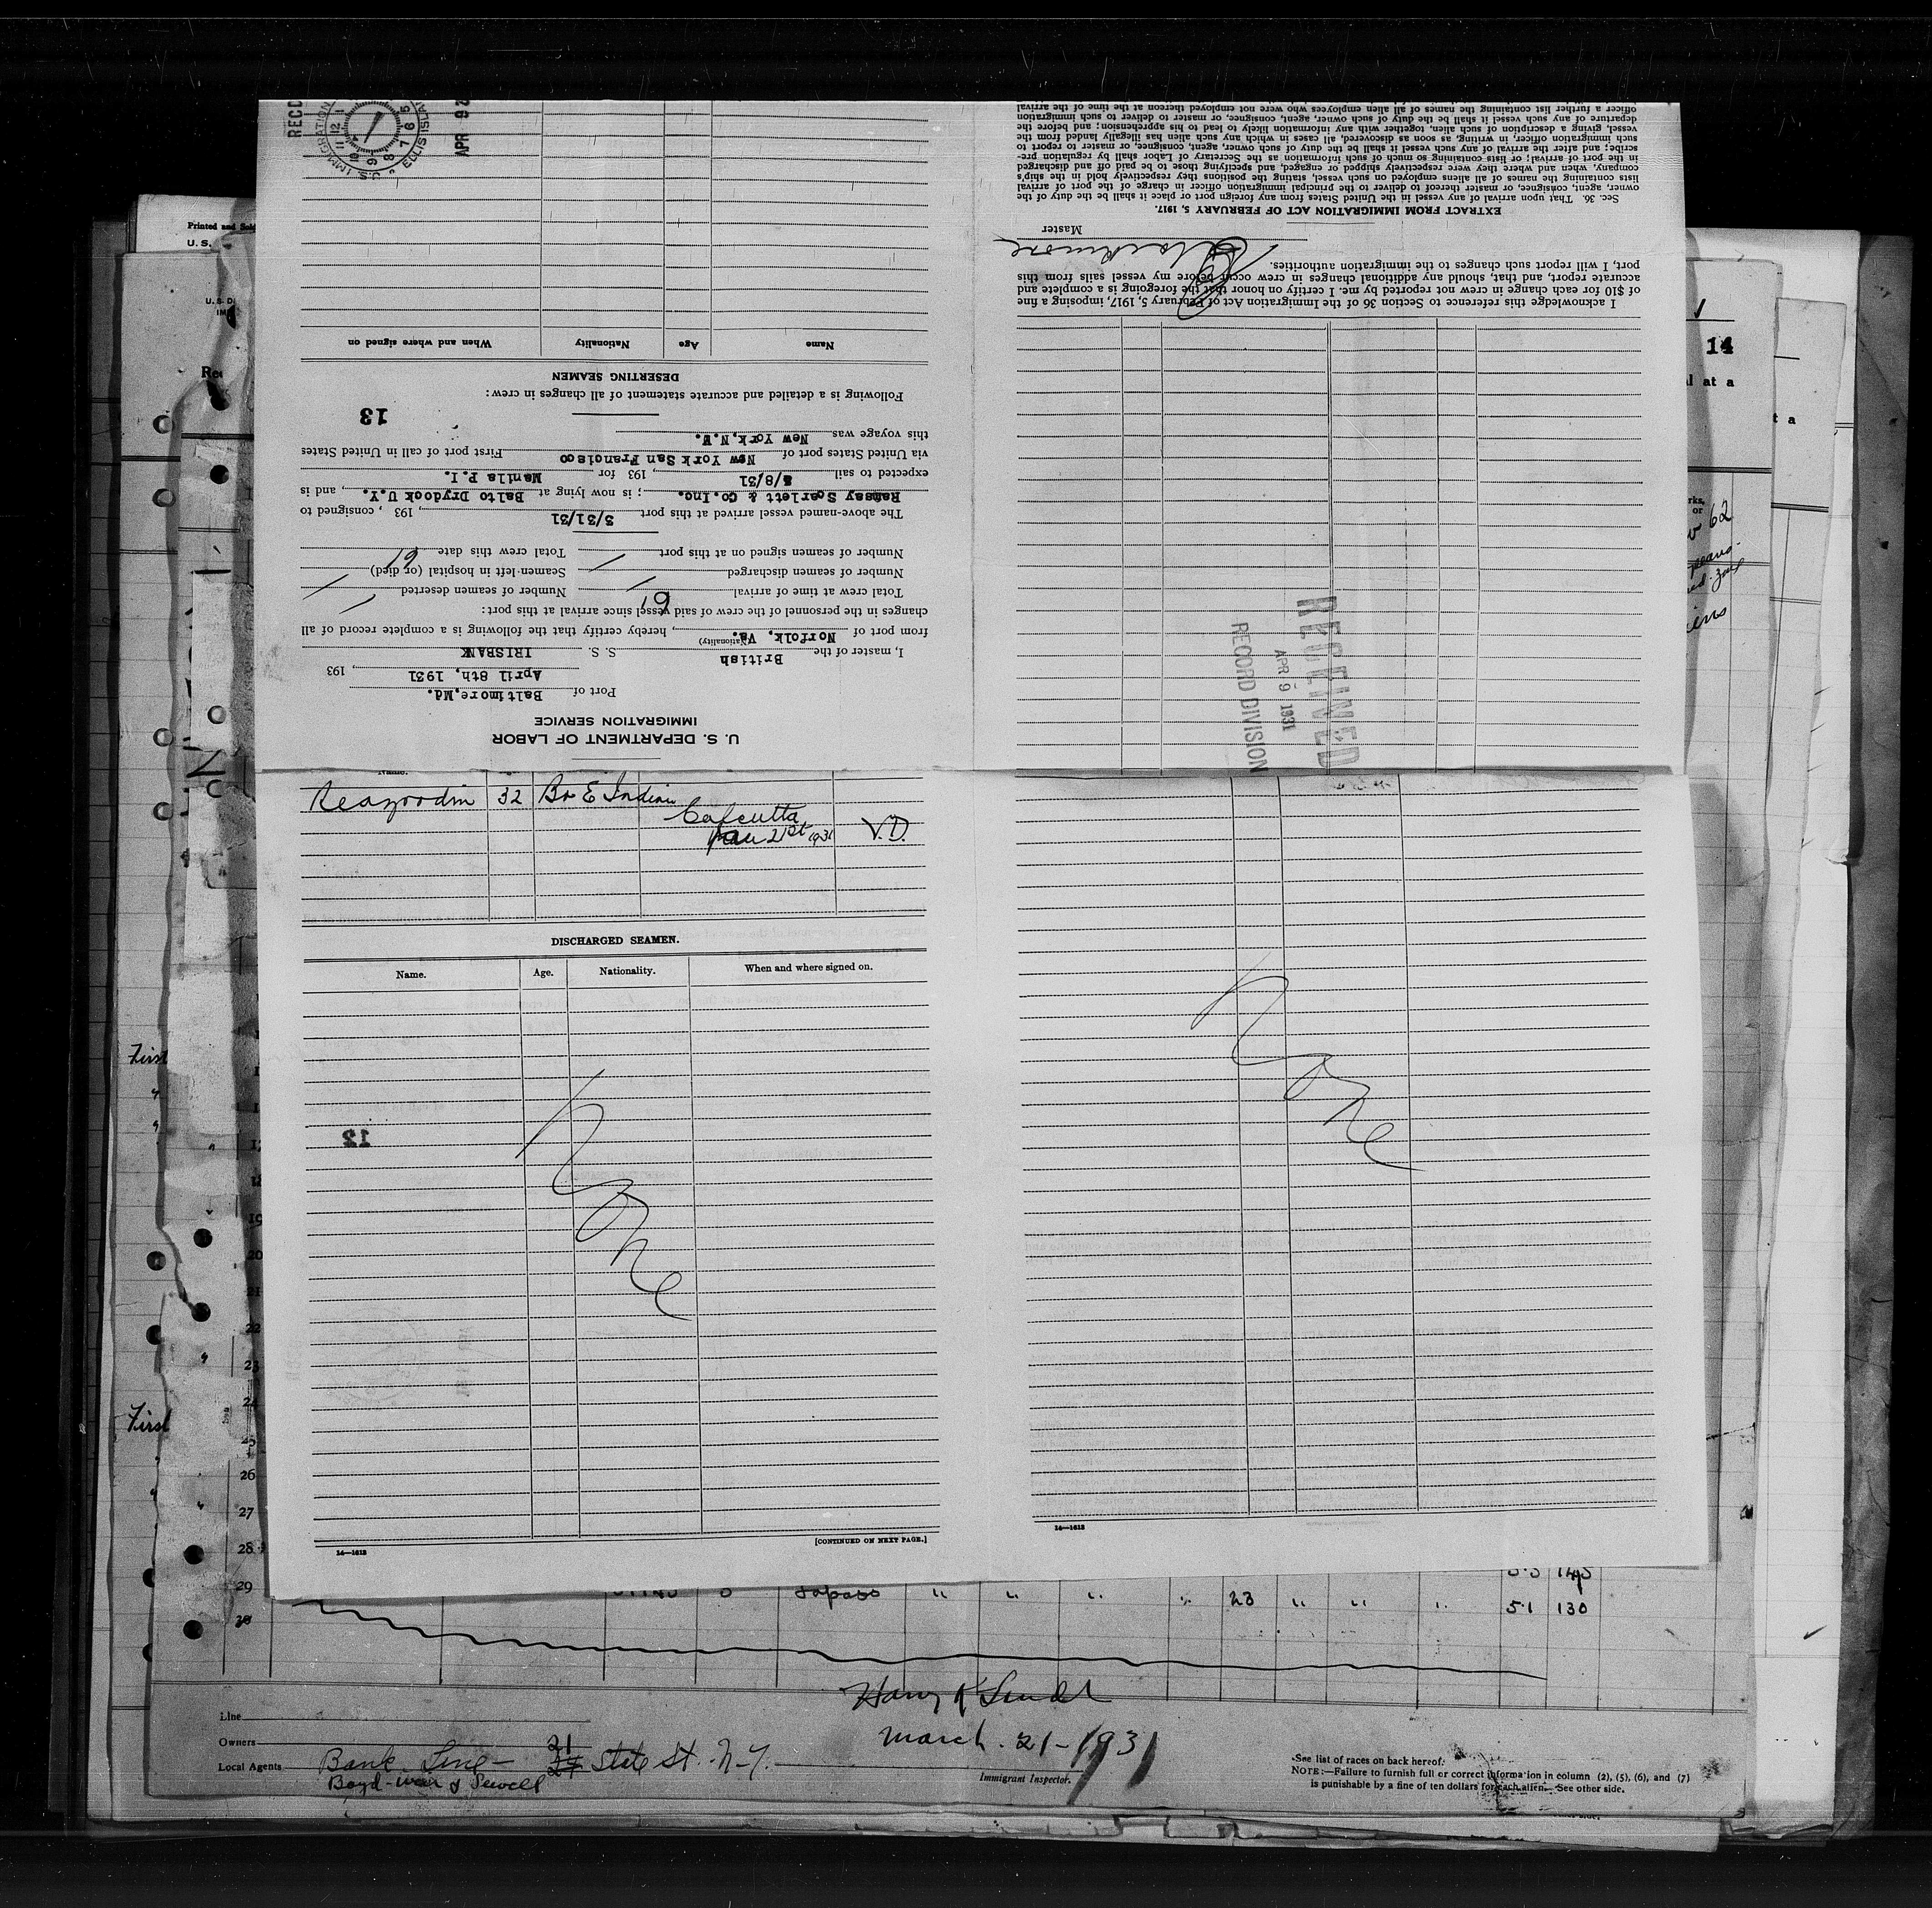 U. S. DEPARTMENT OF LABOR
IMMIGRATION SERVICE
Port of Baltimore, Md.
April 8th, 1931, 193
I, master of the British S. S. IRISBANK
(Nationality)
from port of Norfolk, Va., hereby certify that the following is a complete record of all
changes in the personnel of the crew of said vessel since arrival at this port:
Total crew at time of arrival 61 Number of seamen deserted /
Number of seamen discharged / Seamen left in hospital (or died) /
Number of seamen signed on at this port / Total crew this date 61
The above-named vessel arrived at this port 3/31/31, 193 , consigned to
Ramsay Scarlett & Co. Inc. ; is now lying at Balto Drydock U.Y. , and is
expected to sail 4/8/31, 193 for Manila P.I.
via United States port of New York San Francisco First port of call in United States
this voyage was New York, N.Y.
13
Following is a detailed and accurate statement of all changes in crew:
DESERTING SEAMEN
Name Age Nationality When and where signed on
REC'D
U.S. IMMIGRATION
ELLIS ISLAND
APR 9
RECEIVED
APR 9 1931
RECORD DIVISION
I acknowledge this reference to Section 36 of the Immigration Act of February 5, 1917, imposing a fine
of $10 for each change in crew not reported by me. I certify on honor that the foregoing is a complete and
accurate report, and that, should any additional changes in crew occur before my vessel sails from this
port, I will report such changes to the immigration authorities.
Master
EXTRACT FROM IMMIGRATION ACT OF FEBRUARY 5, 1917.
Sec. 36. That upon arrival of any vessel in the United States from any foreign port or place it shall be the duty of the
owner, agent, consignee, or master thereof to deliver to the principal immigration officer in charge of the port of arrival
lists containing the names of all aliens employed on such vessel, stating the positions they respectively hold in the ship's
company, when and where they were respectively shipped or engaged, and specifying those to be paid off and discharged
in the port of arrival; or lists containing so much of such information as the Secretary of Labor shall by regulation pre-
scribe; and after the arrival of any such vessel it shall be the duty of such owner, agent, consignee, or master to report to
such immigration officer, in writing, as soon as discovered, all cases in which any such alien has illegally landed from the
vessel, giving a description of such alien, together with any information likely to lead to his apprehension; and before the
departure of any such vessel it shall be the duty of such owner, agent, consignee, or master to deliver to such immigration
officer a further list containing the names of all alien employees who were not employed thereon at the time of the arrival
Name.
Reazoodin 32 Br E Indian
Calcutta
Jan 21st 1931 V.D.
DISCHARGED SEAMEN.
Name. Age. Nationality. When and where signed on.
None
12
[CONTINUED ON NEXT PAGE.]
14—1613
None
14—1613
Printed and Sold
U. S.
14
at a
62
First
First
18
19
20
21
22
23
24
25
26
27
28
29
30
23
5.1 130
Harry K
March. 21-1931
Immigrant Inspector.
Line
Owners
Local Agents Bank Line - 21 State St. N.Y.
Boyd-Weir & Sewell
See list of races on back hereof.
NOTE:—Failure to furnish full or correct information in column (2), (5), (6), and (7)
is punishable by a fine of ten dollars for each alien. See other side.